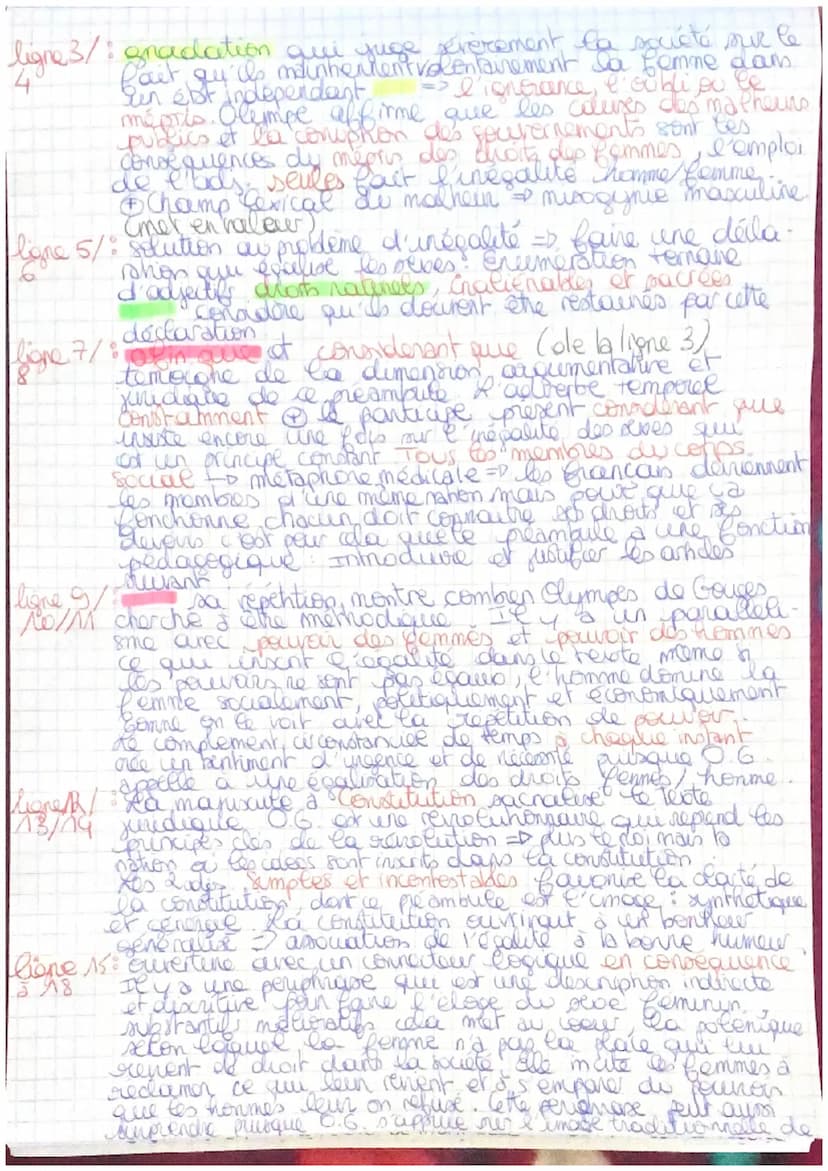 ligne 3/4 : gradation qui juge sévèrement la société sur le
fait qu'ils maintiennent volontairement la femme dans
un état indépendant => l'ignorance, l'oubli ou le
mépris. Olympe affirme que les causes des malheurs
publics et la corruption des gouvernements sont les
conséquences du mépris des droits des femmes, l'emploi
de l'adj. seules fait l'inégalité homme/femme.
⊕ Champ lexical du malheur => misogynie masculine
(met en valeur)
ligne 5/6 : solution au problème d'inégalité => faire une décla-
ration qui égalise les sexes. Enumération ternaire
d'adjectifs droits naturels, inaliénables et sacrées
considère qu'ils doivent être restaurés par cette
déclaration
ligne 7/8 : afin que et considérant que (de la ligne 3)
témoigne de la dimension argumentative et
juridique de ce préambule. L'adverbe temporel
constamment ⊕ le participe présent considérant que
insiste encore une fois sur l'inégalité des sexes qui
est un principe constant Tous les membres du corps
social -> métaphore médicale => les français deviennent
les membres d'une même nation mais pour que ça
fonctionne chacun doit connaitre ses droits et ses
devoirs c'est pour cela que le préambule a une fonction
pédagogique : introduire et justifier les articles
suivant
ligne 9/10/11 : sa répétition montre combien Olympes de Gouges
cherche à être méthodique. Il y a un paralléli-
sme avec pouvoir des femmes et pouvoir des hommes
ce qui inscrit l'égalité dans le texte même si
les pouvoirs ne sont pas égaux, l'homme domine la
femme socialement, politiquement et économiquement
comme on le voit avec la répétition de pouvoir.
Le complément circonstanciel de temps à chaque instant
crée un sentiment d'urgence et de nécessité puisque O.G.
appelle à une égalisation des droits femmes/homme.
ligne 12/13/14 : La majuscule à Constitution sacralise le texte
juridique. O.G. est une révolutionnaire qui reprend les
principes clés de la révolution => plus le roi mais la
nation où les idées sont inscrits dans la constitution.
Les 2 adj. simples et incontestables favorise la clarté de
la constitution, dont ce préambule est l'image : synthétique
et cérémone. La constitution ouvrirait à un bonheur
généralisé => association de l'égalité à la bonne humeur
ligne 15 à 18 : ouverture avec un connecteur logique en conséquence
Il y a une périphrase qui est une description indirecte
et discriptive pour faire l'éloge du sexe féminin,
substantifs mélioratifs cela met au coeur la polémique
selon laquel la femme n'a pas la place qui lui
revient de droit dans la société, elle incite les femmes à
réclamer ce qui leur revient et à s'emparer du pouvoir
que les hommes leur on refusé. Cette périphrase peut aussi
surprendre puisque O.G. s'appuie sur l'image traditionnelle de